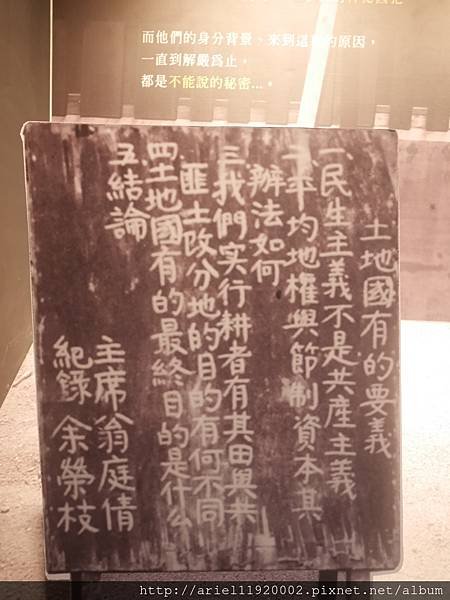 而他們的身分背景、來到這的原因，
一直到解嚴爲止，
都是不能說的秘密...。
土地國有的要義
一民生主義不是共產主義
二平均地權與節制資本其
辦法如何
三我們实行耕者有其田與共
匪土改分地的目的有何不同
四土地國有的最終目的是什么
五結論
主席翁庭倩
紀錄 余榮枝
http://ariel11920002.pixnet.net/album